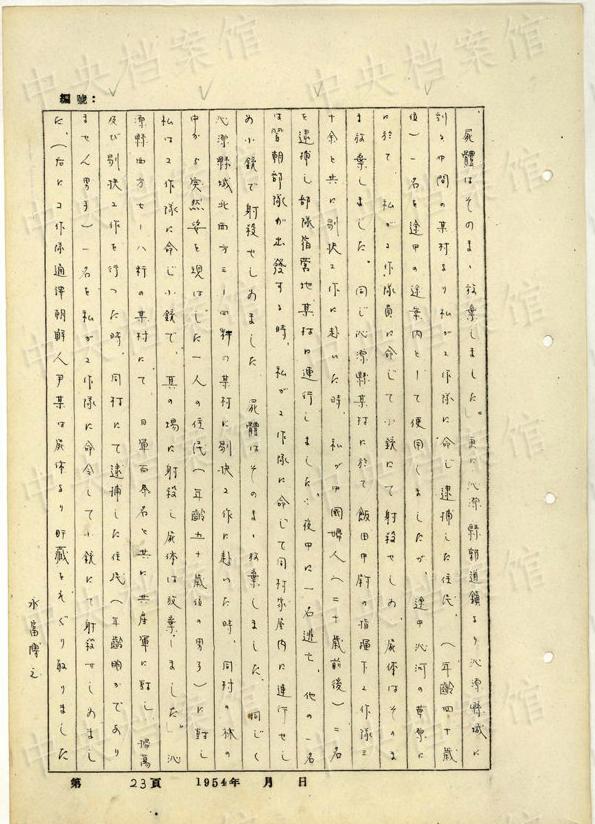 編號：
屍體はそのまゝ放棄しました。更に沁源縣郭道鎮より沁源縣城に
到る中間の某村より私が工作隊に命じ逮捕した住民、（年齢四十歳
位）一名を途中の道案内として使用しましたが、途中沁河の草原に
於て、私が工作隊員に命じて小銃にて射殺せしめ、屍体はそのま
ま放棄しました。同じ沁源縣某村に於て飯田中尉の指揮下工作隊三
十余と共に剔抉工作に赴いた時、私が中國婦人（二十歳前後）二名
を逮捕し部隊宿営地某村に連行しました。夜中に一名逃亡、他の一名
は翌朝部隊が出發する時、私が工作隊に命じて同村家屋内に連行せし
め小銃で射殺せしめました。屍體はそのまゝ放棄しました。同じく
沁源縣城北西方三ー四粁の某村に剔抉工作に赴いた時、同村の林の
中から突然姿を現はした一人の住民（年齢五十歳位の男子）に対し
私は工作隊に命じ小銃で、其の場に射殺し屍体は放棄しました。沁
源縣西方七ー八粁の某村にて 日軍百余名と共に共産軍に対し
及び剔抉工作を行った時、同村にて逮捕した住民（年齢明かであり
ません男子）一名を私が工作隊に命令して小銃にて射殺せしめまし
た。（右に工作隊通譯朝鮮人尹某は屍体より貯蔵をえぐり取りました
永富博之
第 23頁 1954年 月 日
中央档案馆